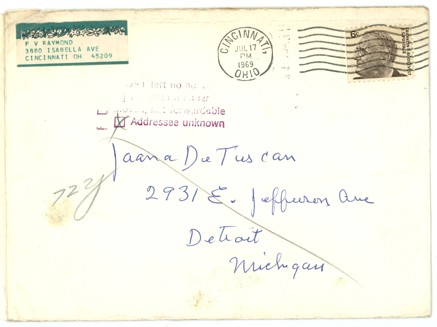 P V RAYMOND
3880 ISABELLA AVE
CINCINNATI OH 45209
CINCINNATI,
JUL 17
PM
1969
OHIO
6¢
Addressee unknown
Jaana DeTuscan
2931 E. Jefferson Ave
Detroit
Michigan